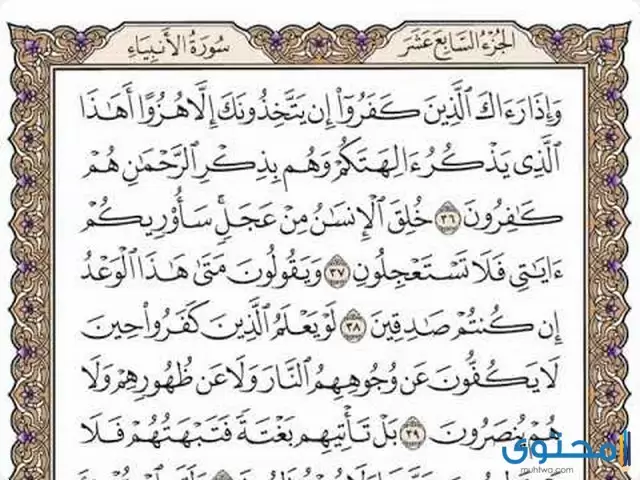 الجزء السابع عشر
سورة الأنبياء
وَإِذَا رَءَاكَ ٱلَّذِينَ كَفَرُوٓاْ إِن يَتَّخِذُونَكَ إِلَّا هُزُوًا أَهَـٰذَا
ٱلَّذِى يَذْكُرُ ءَالِهَتَكُمْ وَهُم بِذِكْرِ ٱلرَّحْمَـٰنِ هُمْ
كَـٰفِرُونَ ٣٦ خُلِقَ ٱلْإِنسَـٰنُ مِنْ عَجَلٍ ۚ سَأُوْرِيكُمْ
ءَايَـٰتِى فَلَا تَسْتَعْجِلُونِ ٣٧ وَيَقُولُونَ مَتَىٰ هَـٰذَا ٱلْوَعْدُ
إِن كُنتُمْ صَـٰدِقِينَ ٣٨ لَوْ يَعْلَمُ ٱلَّذِينَ كَفَرُواْ حِينَ
لَا يَكُفُّونَ عَن وُجُوهِهِمُ ٱلنَّارَ وَلَا عَن ظُهُورِهِمْ وَلَا
هُمْ يُنصَرُونَ ٣٩ بَلْ تَأْتِيهِم بَغْتَةً فَتَبْهَتُهُمْ فَلَا
محتوى
muhtwa.com